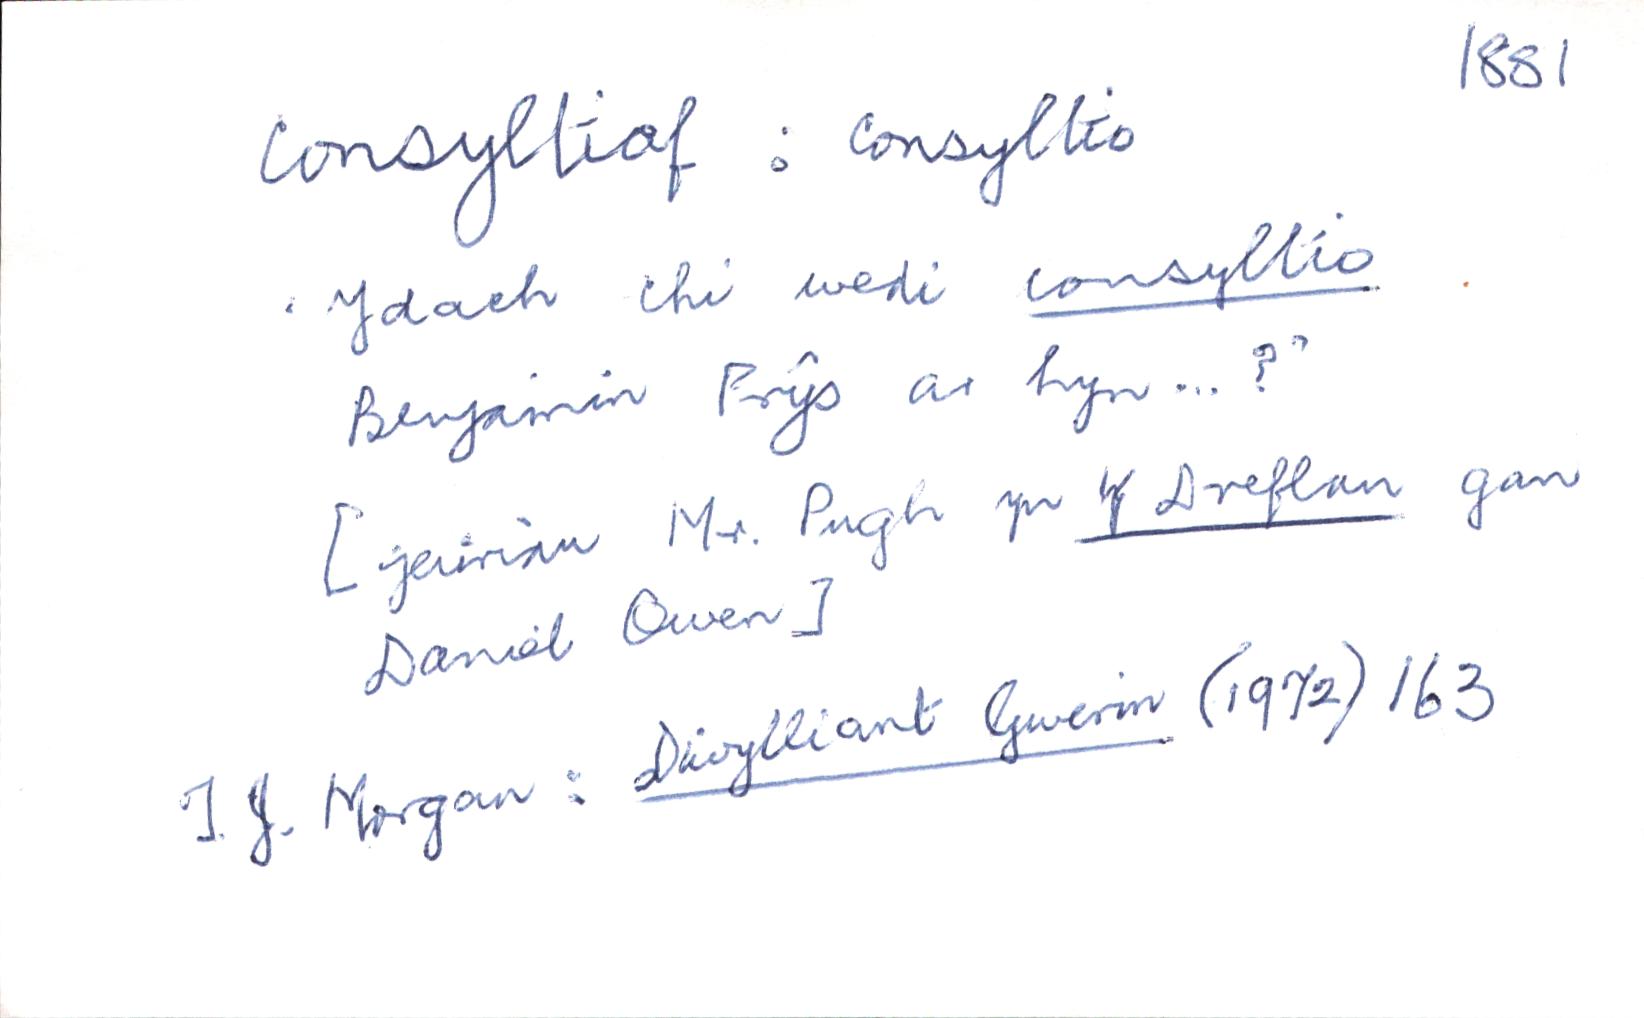 1881
consyltiaf : consyltio
'Ydach chi wedi consyltio
Benjamin Prŷs ar hyn ... ?'
[geiriau Mr. Pugh yn Y Dreflan gan
Daniel Owen]
T. J. Morgan : Diwylliant Gwerin (1972) 163